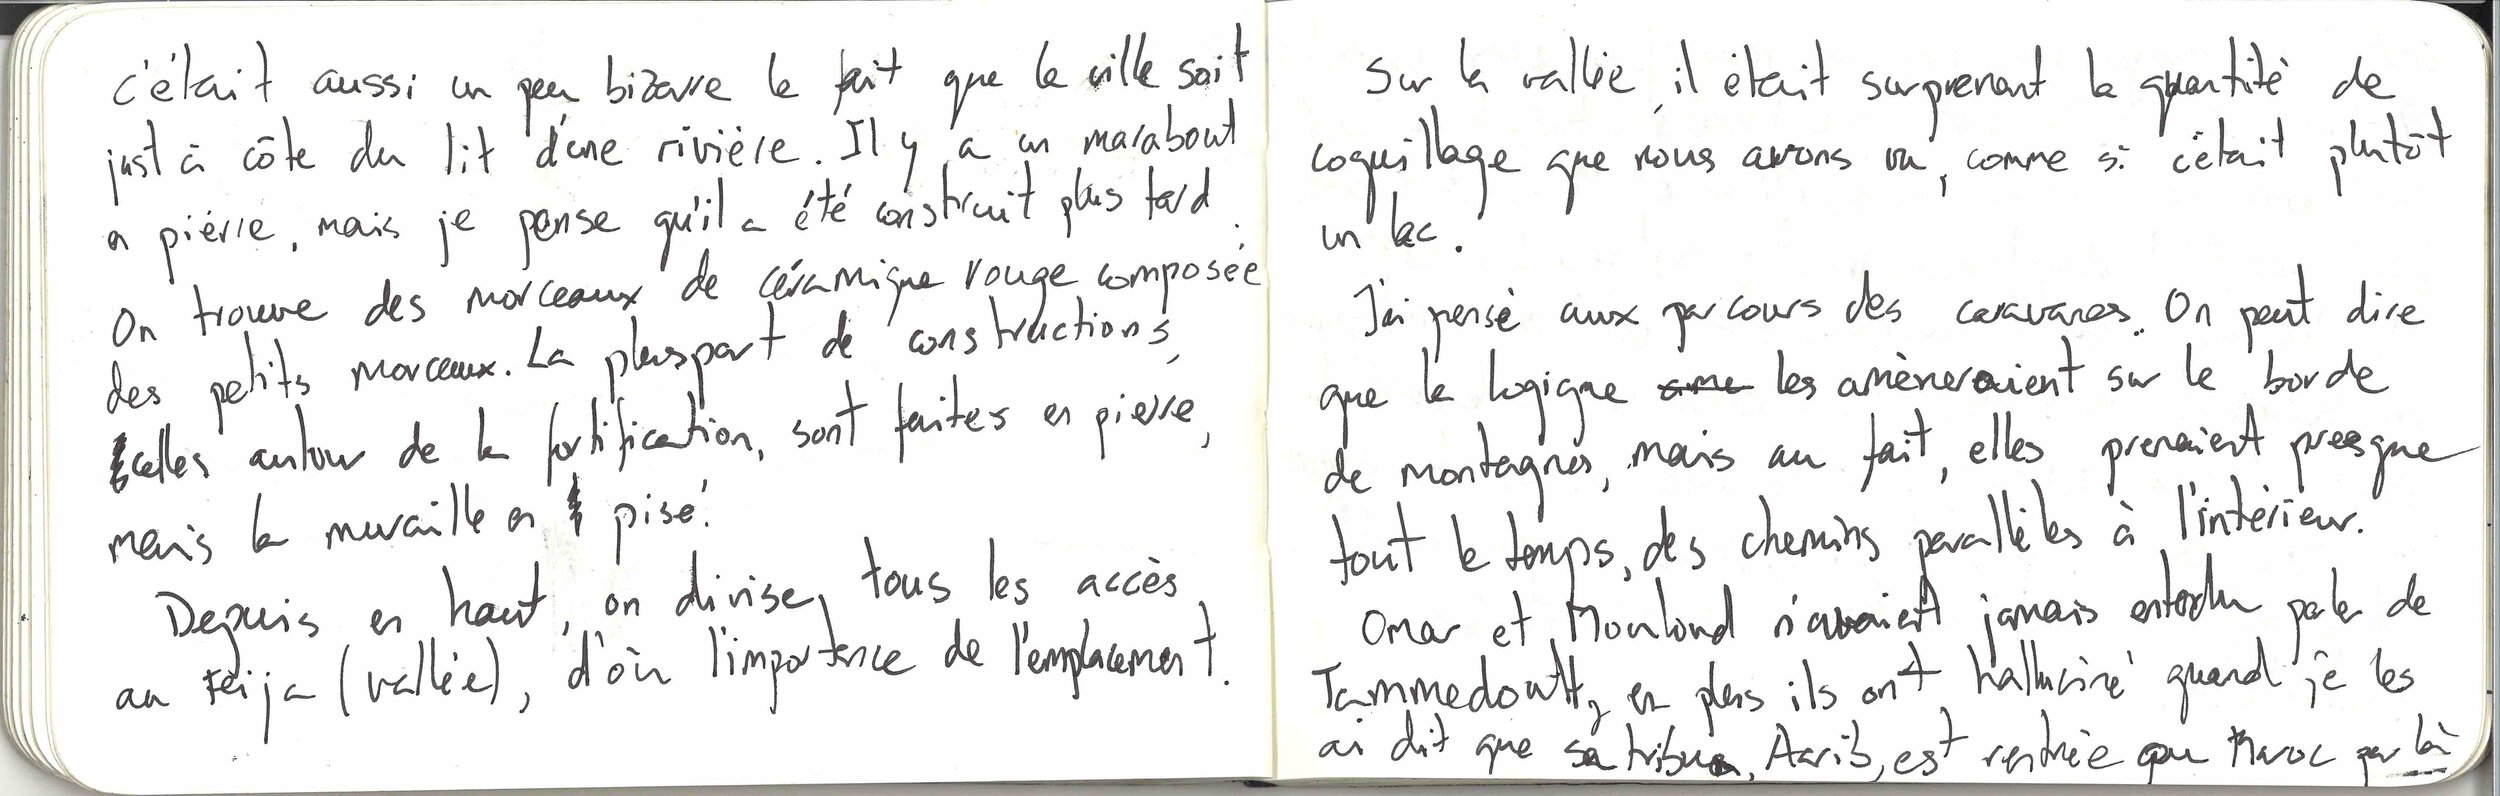 c'était aussi un peu bizarre le fait que la ville soit
just à côte du lit d'une rivière. Il y a un marabout
en piérre, mais je pense qu'il a été construit plus tard.
On trouve des morceaux de céramique rouge composée
des petits morceaux. La pluspart de constructions,
celles autour de la fortification, sont faites en pierre,
mais la muraille en pisé.
Depuis en haut, on divise tous les accès
au Feija (vallée), d'où l'importence de l'emplacement.
Sur la vallée, il était surprenant la quantité de
coquillage que nous avons vu, comme si c'était plutôt
un lac.
J'ai pensé aux parcours des caravanes. On peut dire
que la logique les amèneraient sur le borde
de montagnes, mais au fait, elles prenaient presque
tout le temps, des chemins parallèles à l'intérieur.
Omar et Mouloud n'avaient jamais entendu parler de
Tammedoult, en plus ils ont halluciné quand je les
ai dit que sa tribu, Aarib, est rentrée au Maroc par là